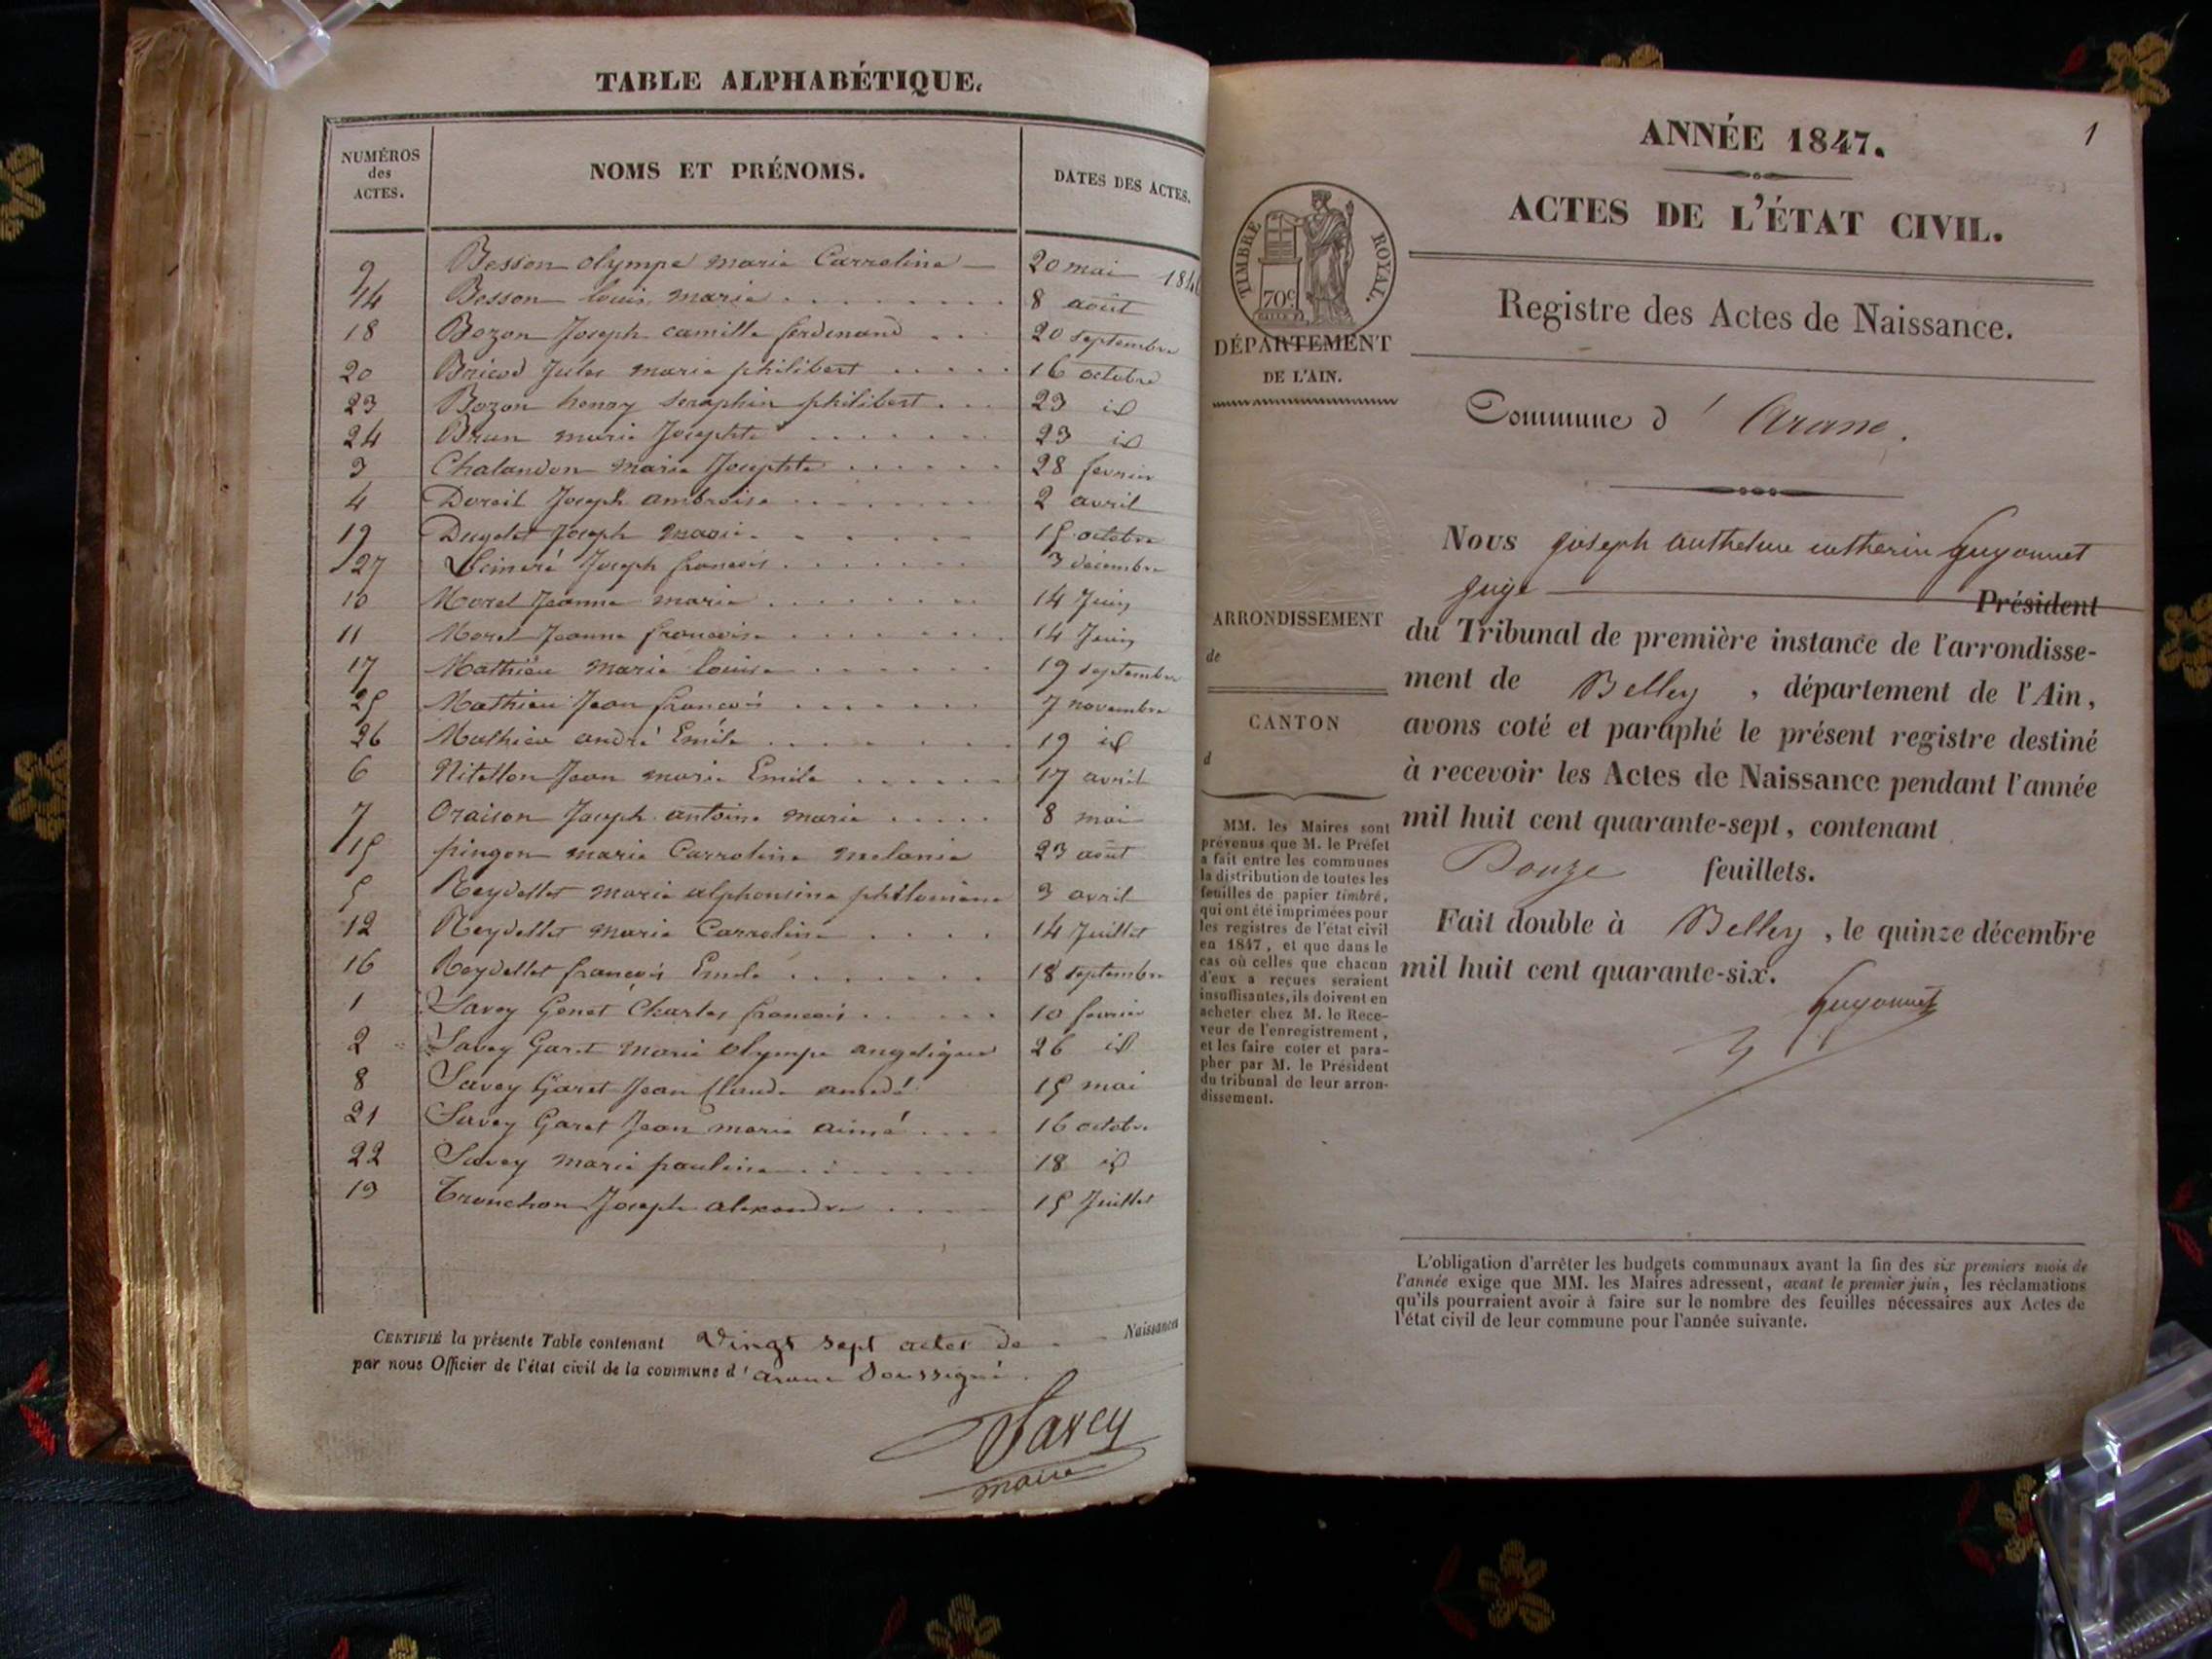 TABLE ALPHABÉTIQUE.
NUMÉROS des ACTES.
NOMS ET PRÉNOMS.
DATES DES ACTES.
9 Besson olympe marie Carroline 20 mai 184
14 Besson louis marie 8 août
18 Bozon Joseph camille ferdinand 20 septembre
20 Jules marie philibert 16 octobre
23 Bozon henry seraphin philibert 23 id
24 Brun marie Josephte 23 id
3 Chalandon marie Josephte 28 fevrier
4 Joseph ambroise 2 avril
19 Joseph marie 15 octobre
27 Joseph francois 3 decembre
10 Morel Jeanne marie 14 Juin
11 Morel Jeanne francoise 14 Juin
17 Mathieu marie louise 19 septembre
25 Mathieu Jean francois 7 novembre
26 Mathieu andré Emile 19 id
6 Jean marie Emile 17 avril
7 Oraison Joseph antoine marie 8 mai
15 pingon marie Carroline melanie 23 août
5 Reydellet marie alphonsine philomene 3 avril
12 Reydellet marie Carroline 14 Juillet
16 Reydellet francois Emile 18 septembre
1 Savey Genet Charles francois 10 fevrier
2 Savey Garet marie olympe angelique 26 id
8 Savey Garet Jean Claude amedé 15 mai
21 Savey Garet Jean marie aimé 16 octobre
22 Savey marie pauline 18 id
13 Tronchon Joseph alexandre 15 Juillet
CERTIFIÉ la présente Table contenant vingt sept actes de Naissances
par nous Officier de l'état civil de la commune d'arane Soussigné.
Savey
maire
1
ANNÉE 1847.
ACTES DE L'ÉTAT CIVIL.
TIMBRE ROYAL.
70c
DÉPARTEMENT
DE L'AIN.
Registre des Actes de Naissance.
Commune d'Arane.
ARRONDISSEMENT
de
CANTON
d
MM. les Maires sont
prévenus que M. le Préfet
a fait entre les communes
la distribution de toutes les
feuilles de papier timbré,
qui ont été imprimées pour
les registres de l'état civil
en 1847, et que dans le
cas où celles que chacun
d'eux a reçues seraient
insuffisantes, ils doivent en
acheter chez M. le Rece-
veur de l'enregistrement,
et les faire coter et para-
pher par M. le Président
du tribunal de leur arron-
dissement.
Nous joseph anthelme Guyonnet
juge Président
du Tribunal de première instance de l'arrondisse-
ment de Belley, département de l'Ain,
avons coté et paraphé le présent registre destiné
à recevoir les Actes de Naissance pendant l'année
mil huit cent quarante-sept, contenant
Douze feuillets.
Fait double à Belley, le quinze décembre
mil huit cent quarante-six.
Guyonnet
L'obligation d'arrêter les budgets communaux avant la fin des six premiers mois de
l'année exige que MM. les Maires adressent, avant le premier juin, les réclamations
qu'ils pourraient avoir à faire sur le nombre des feuilles nécessaires aux Actes de
l'état civil de leur commune pour l'année suivante.